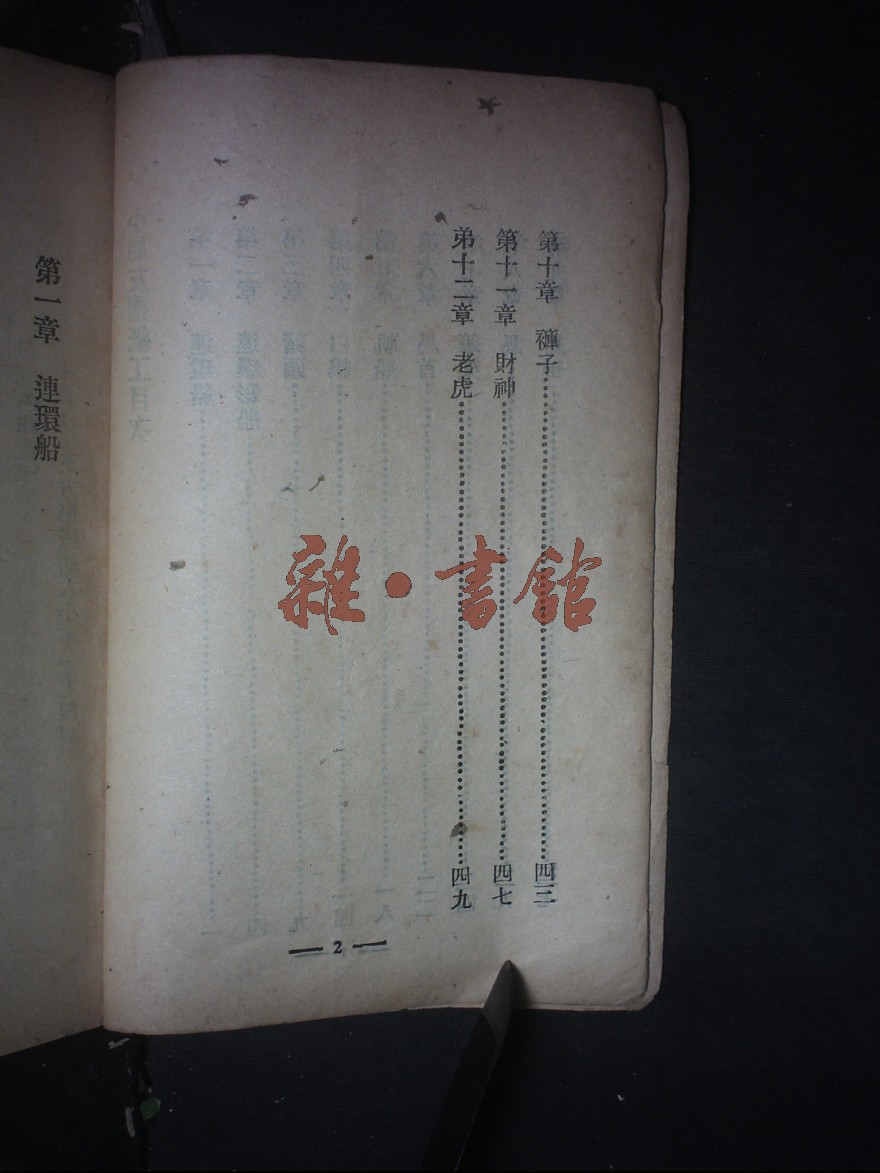 第十章 褲子……四三
第十一章 財神……四七
弟十二章 老虎……四九
2
第一章 連環船
雜·書館